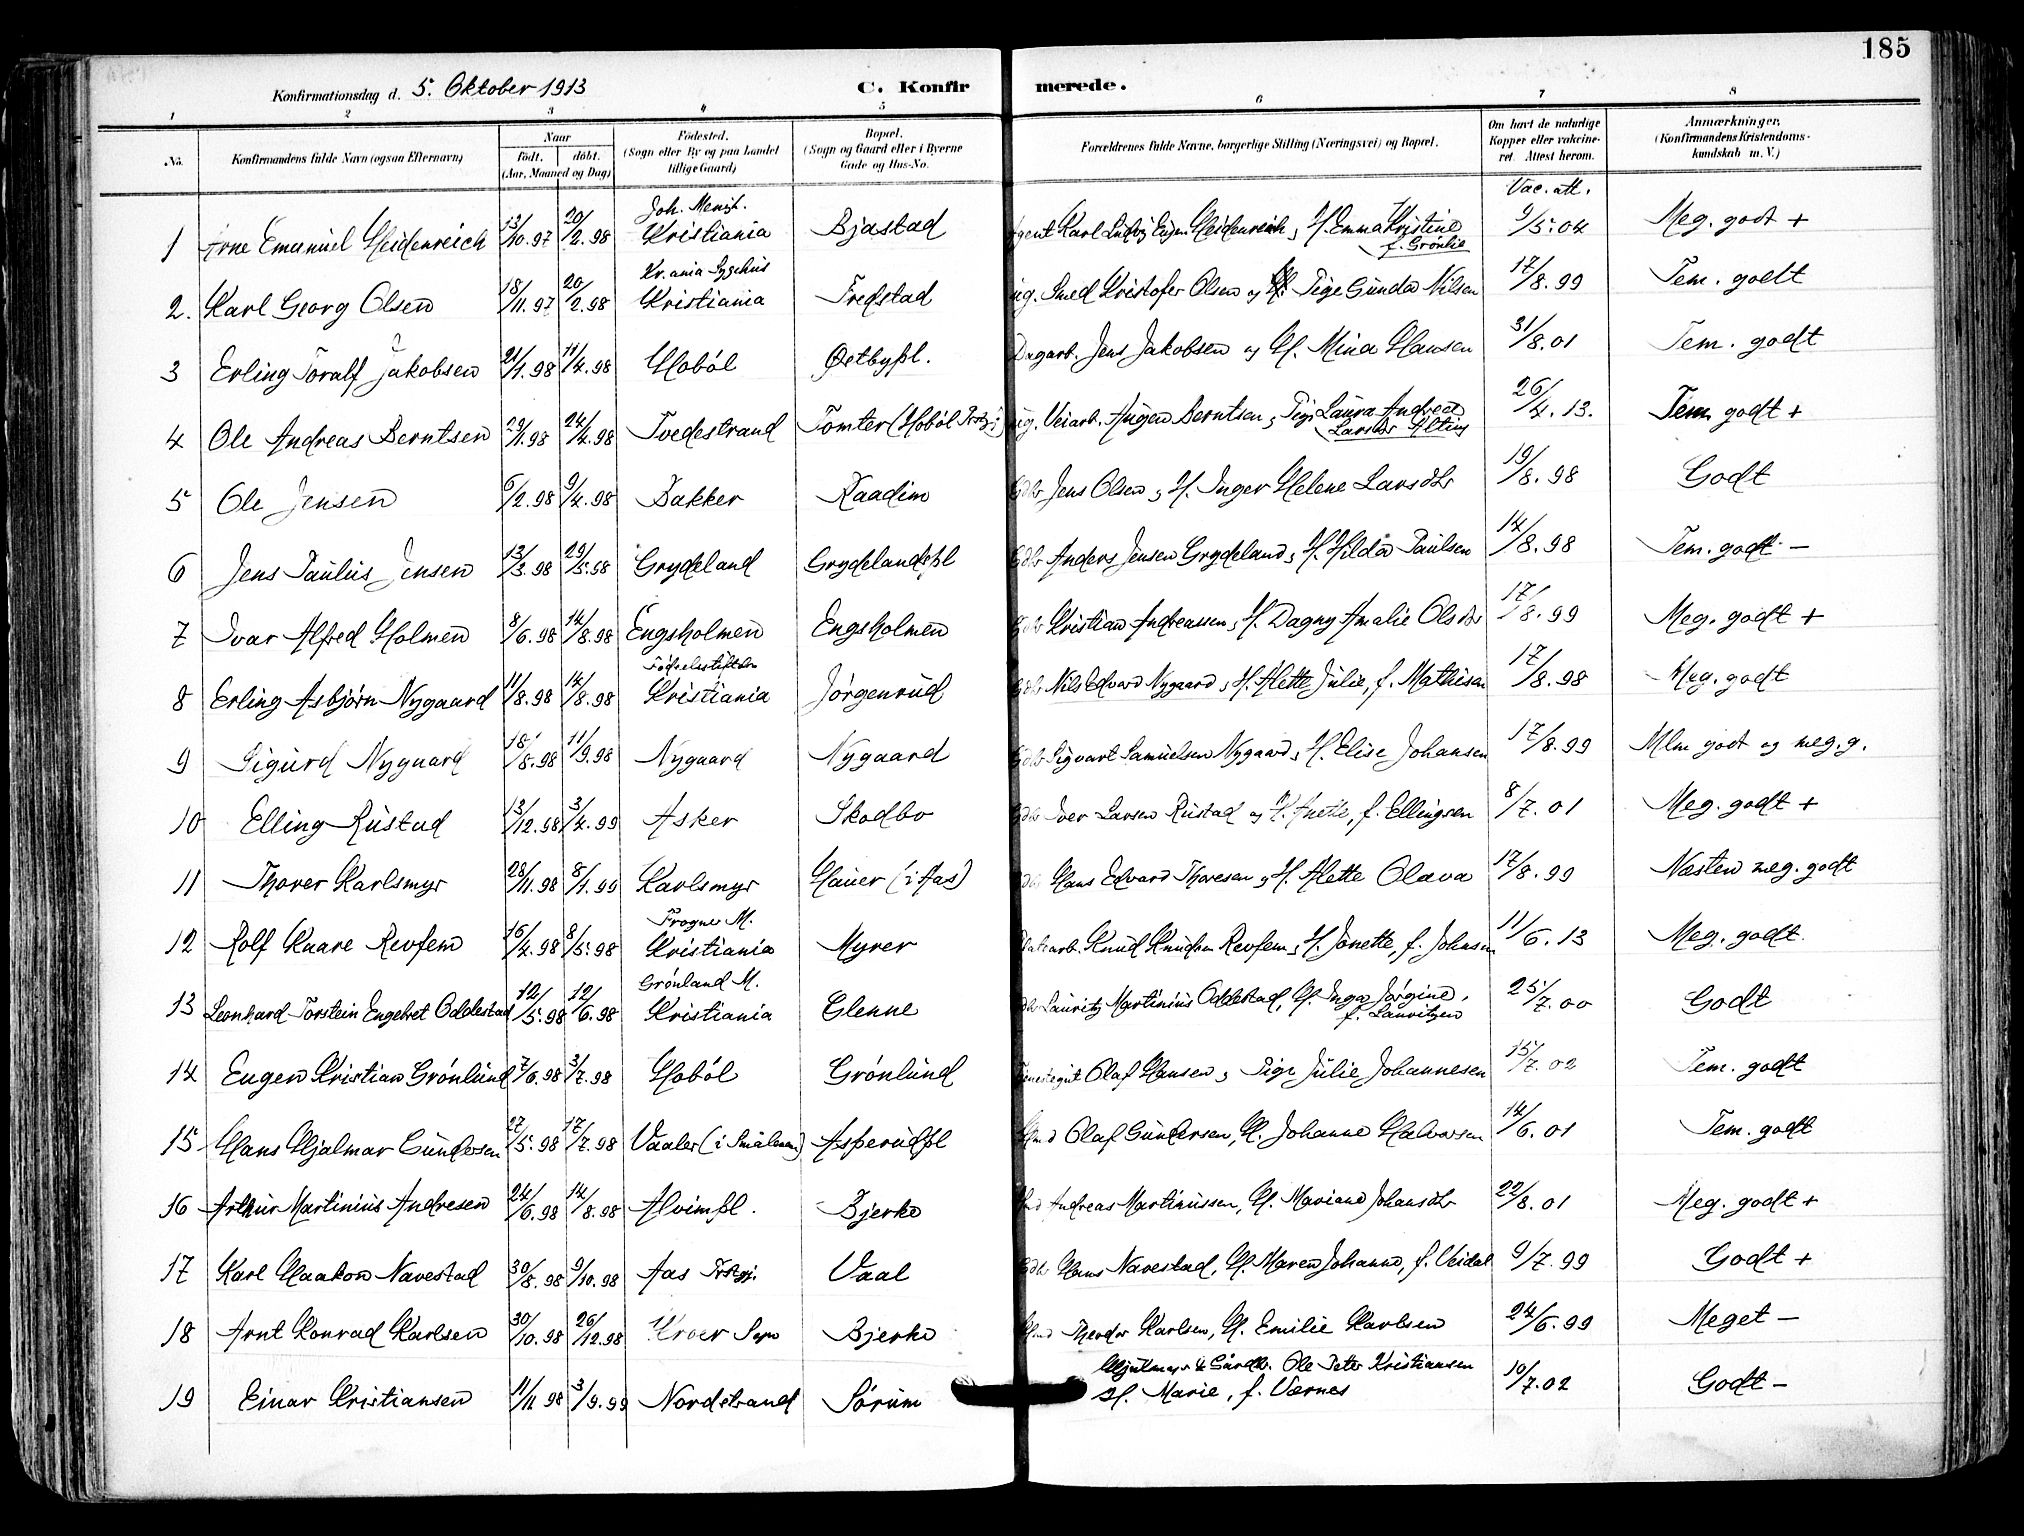 185
Konfirmationsdag d. 5. Oktober 1913 C. Konfirmerede.
1 2 3 4 5 6 7 8
No. Konfirmandens fulde Navn (ogsaa Efternavn) Naar født. døbt. (Aar, Maaned og Dag) Fødested. (Sogn eller By og paa Landet tillige Gaard) Bopæl. (Sogn og Gaard eller i Byerne Gade og Hus-No. Forældrenes fulde Navne, borgerlige Stilling (Næringsvei) og Bopæl. Om havt de naturlige Kopper eller vakcineret. Attest herom. Anmærkninger, (Konfirmandens Kristendomskundskab m. V.)
Joh. Menigh. Vac. att.
1 Arne Emanuel Heidenreich 13/10.97 20/2.98 Kristiania Bjastad Agent Karl Ludvig Eugen Heidenreich, H. Emma Kristine f. Grønlie 9/5.04 Meg. godt +
Kr.ania Sygehus
2. Karl Georg Olsen 18/11.97 20/2.98 Kristiania Fredstad ug. Smed Kristofer Olsen og Pige Gunda Nilsen 17/8.99 Tem. godt
3 Erling Toralf Jakobsen 21/1.98 11/4.98 Hobøl Østbypl. Dagarb. Jens Jakobsen og H. Mina Hansen 31/8.01 Tem. godt
4 Ole Andreas Berntsen 29/1.98 24/4.98 Tvedestrand Tomter (Hobøl Prstgj.) ug. Veiarb. Aagen Berntsen, Pige Laura Andrea Larsdtr 26/4.13. Tem. godt +
5 Ole Jensen 6/2.98 9/4.98 Bakker Kaadim Gdbr Jens Olsen, H. Inger Helene Larsdtr 19/8.98 Godt
6 Jens Paulus Jensen 13/3.98 29/5.98 Grydeland Grydelandspl Gdbr Anders Jensen Grydeland, H. Hilda Paulsen 14/8.98 Tem. godt –
7 Ivar Alfred Holmen 8/6.98 14/8.98 Engsholmen Engsholmen Gdbr Kristian Andreassen, H. Dagny Amalie Olsdtr 17/8.99 Meg. godt +
Fødselsstiftelsen
8 Erling Asbjørn Nygaard 11/8.98 14/8.98 Kristiania Jørgenrud Gdbr Nils Edvard Nygaard, H. Alette Julie, f. Mathisen 17/8.98 Meg. godt
9 Sigurd Nygaard 18/8.98 11/9.98 Nygaard Nygaard Gdbr Sigvart Samuelsen Nygaard, H. Elise Johansen 17/8.99 Mlm godt og meg. g.
10 Elling Rustad 13/12.98 3/4.99 Asker Skodbo Gdbr Iver Larsen Rustad og H. Anette, f. Ellingsen 8/7.01 Meg. godt +
11 Thorer Karlsmyr 28/11.98 8/1.99 Karlsmyr Hauer (i Aas) Hans Edvard Thoresen, H. Alette Olava 17/8.99 Næsten meg. godt
Frogner M.
12 Rolf Kaare Revfem 16/4.98 8/5.98 Kristiania Myrer Knud Knudsen Revfem, H. Jonette, f. Johansen 11/6.13 Meg. godt.
Grønland M.
13 Leonhard Torstein Engebret Oddestad 12/5.98 12/6.98 Kristiania Glenne Lauritz Martinius Oddestad, H. Inga Jørgine, f. Lauritzen 25/7.00 Godt
14 Eugen Kristian Grønlund 7/6.98 3/7.98 Hobøl Grønlund Tjenestegut Olaf Hansen, Pige Julie Johannesen 15/7.02 Tem. godt
15 Hans Hjalmar Gundersen 27/5.98 17/7.98 Vaaler (i Smålenene) Asperudpl Hmd Olaf Gundersen, H. Johanne Halvorsen 14/6.01 Tem. godt
16 Arthur Martinius Andresen 24/6.98 14/8.98 Alvimpl. Bjerke Hmd Andreas Martinussen, H. Mariane Johansdtr 22/8.01 Meg. godt +
17 Karl Haakon Navestad 30/8.98 9/10.98 Aas Prstgj. Vaal Gdbr Hans Navestad, H. Maren Johanne, f. Veidal 9/7.99 Godt +
18 Arnt Konrad Karlsen 30/10.98 26/12.98 Kroer Sogn Bjerke Hmd Theodor Karlsen, H. Emilie Karlsen 24/6.99 Meget –
19 Einar Kristiansen 11/11 98 3/9.99 Nordstrand Sørum Ole Peter Kristiansen H. Marie, f. Værnes 10/7.02 Godt –